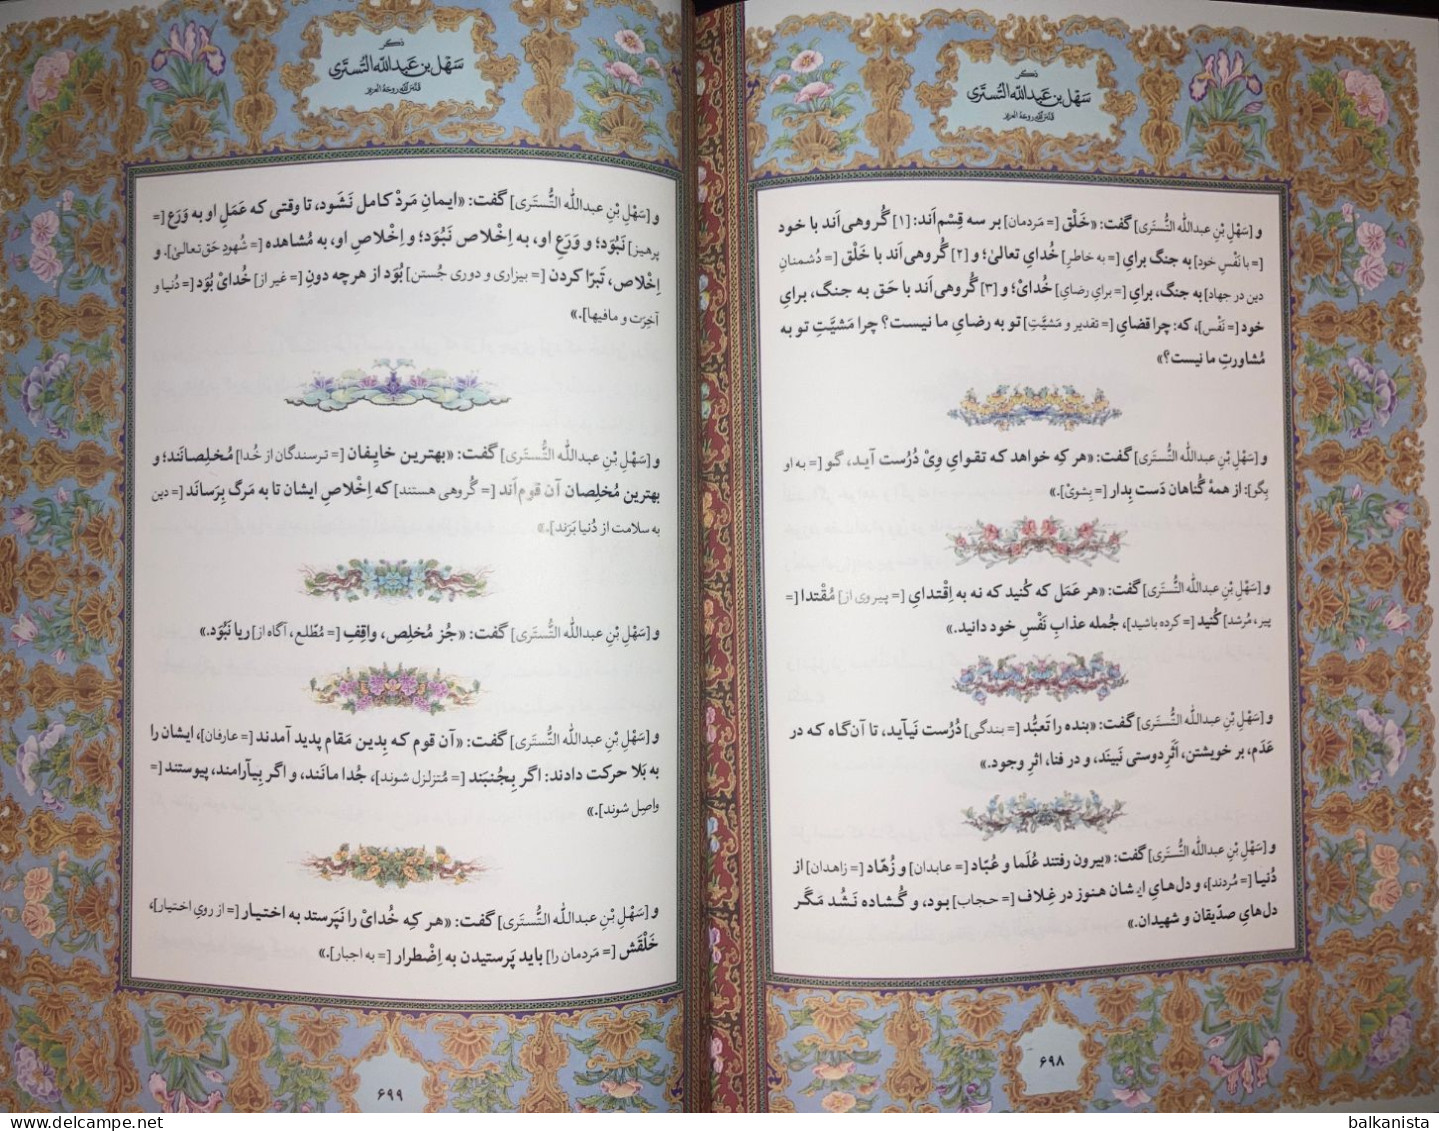 ذکر
سَهْل بن عَبدالله التُستَری
قدّس الله روحَهُ العزیز
و [سَهْلِ بْنِ عبداللّٰه التُّستَری] گفت: «خَلْق [= مَردمان] بر سه قِسْم‌اَند: [۱] گُروهی‌اَند با خود
[= با نَفْسِ خود] به جنگ برایِ [= به خاطرِ] خُدایِ تعالیٰ؛ و [۲] گُروهی‌اَند با خَلْق [= دُشمنانِ
دین در جهاد] به جنگ، برایِ [= برایِ رضایِ] خُدایْ؛ و [۳] گُروهی‌اَند با حَق به جنگ، برایِ
خود [= نَفْس]، که: چرا قضایِ [= تقدیر و مَشیَّتِ] تو به رضایِ ما نیست؟ چرا مَشیَّتِ تو به
مُشاورتِ ما نیست؟»
و [سَهْلِ بْنِ عبداللّٰه التُّستَری] گفت: «هر کِه خواهد که تقوایِ ویْ دُرُست آید، گو [= به او
بِگو]: از همهٔ گُناهان دَست بِدار [= بِشویْ].»
و [سَهْلِ بْنِ عبداللّٰه التُّستَری] گفت: «هر عَمَل که کُنید که نه به اِقْتدایِ [= پیروی از] مُقْتدا [=
پیر، مُرشد] کُنید [= کرده باشید]، جُمله عذابِ نَفْسِ خود دانید.»
و [سَهْلِ بْنِ عبداللّٰه التُّستَری] گفت: «بنده را تَعبُّد [= بندگی] دُرُست نَیآید، تا آن‌گاه که در
عَدَم، بر خویشتن، اَثَرِ دوستی نَبینَد، و در فنا، اثرِ وجود.»
و [سَهْلِ بْنِ عبداللّٰه التُّستَری] گفت: «بیرون رفتند عُلَما و عُبّاد [= عابدان] و زُهّاد [= زاهدان] از
دُنیا [= مُردند]، و دل‌هایِ ایشان هنوز در غِلاف [= حجاب] بود، و گُشاده نَشُد مَگَر
دل‌هایِ صدّیقان و شهیدان.»
۶۹۸
ذکر
سَهْل بن عَبدالله التُستَری
قدّس الله روحَهُ العزیز
و [سَهْلِ بْنِ عبداللّٰه التُّستَری] گفت: «ایمانِ مَردْ کامل نَشَود، تا وقتی که عَمَلِ او به وَرَع [=
پرهیز] نَبُوَد؛ و وَرَعِ او، به اِخْلاص نَبُوَد؛ و اِخْلاصِ او، به مُشاهده [= شُهودِ حَق تعالیٰ]. و
اِخْلاص، تَبرّا کردن [= بیزاری و دوری جُستن] بُوَد از هرچه دونِ [= غیر از] خُدایْ بُوَد [= دُنیا و
آخِرَت و مافیها].»
و [سَهْلِ بْنِ عبداللّٰه التُّستَری] گفت: «بهترینِ خایِفان [= ترسندگان از خُدا] مُخلِصانَند؛ و
بهترینِ مُخلِصان آن قوم‌اَند [= گُروهی هستند] که اِخْلاصِ ایشان تا به مَرگ بِرَسانَد [= دین
به سلامت از دُنیا بَرَند].»
و [سَهْلِ بْنِ عبداللّٰه التُّستَری] گفت: «جُز مُخلِص، واقِفِ [= مُطّلع، آگاه از] ریا نَبُوَد.»
و [سَهْلِ بْنِ عبداللّٰه التُّستَری] گفت: «آن قوم که بِدین مَقام پدید آمدند [= عارفان]، ایشان را
به بَلا حرکت دادند: اگر بِجُنبَند [= مُتزلزل شوند]، جُدا مانَند، و اگر بِیآرامند، پیوستند [=
واصل شوند].»
و [سَهْلِ بْنِ عبداللّٰه التُّستَری] گفت: «هر که خُدایْ را نَپَرستد به اختیار [= از رویِ اختیار]،
خَلْقَش [= مَردمان را] باید پَرستیدن به اِضْطرار [= به اجبار].»
۶۹۹
balkanista